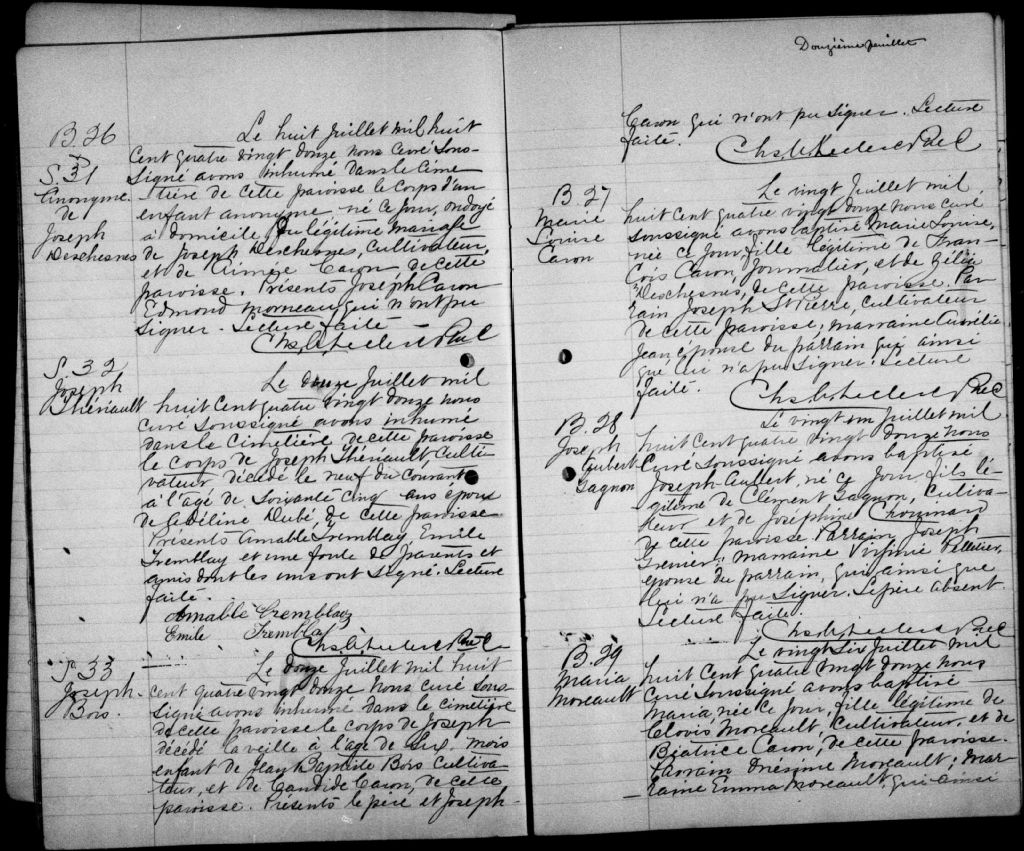 B. 26
S. 31
Anonyme
de
Joseph
Deschesnes
Le huit Juillet mil huit
Cent quatre vingt douze nous curé Sous-
Signé avons inhumé dans le cime
tière de cette paroisse le corps d'un
enfant anonyme né ce jour, ondoyé
à domicile du légitime mariage
de Joseph Deschesnes, Cultivateur,
et de Aimée Caron, de cette
paroisse. Présents Joseph Caron
Edmond Morneau qui n'ont pu
Signer. Lecture faite
Ptre
S. 32
Joseph
Thériault
Le douze Juillet mil
huit Cent quatre vingt douze nous
Curé Soussigné avons inhumé
dans le Cimetière de cette paroisse
le corps de Joseph Thériault, Culti-
vateur décédé le neuf du Courant
à l'âge de Soixante cinq ans époux
de Adéline Dubé, de cette paroisse
Présents Amable Tremblay, Emile
Tremblay et une foule de parents et
amis dont les uns ont Signé. Lecture
faite.
Amable Tremblay
Emile Tremblay
Ptre
S. 33
Joseph
Bois.
Le douze Juillet mil huit
cent quatre vingt douze nous curé Sous-
Signé avons inhumé dans le cimetière
de cette paroisse le corps de Joseph
décédé la veille à l'âge de Six mois
enfant de Jean Baptiste Bois Cultiva-
teur, et de Candide Caron, de cette
paroisse. Présents le père et Joseph
Douzième feuillet
Caron qui n'ont pu Signer. Lecture
faite.
Ptre
B. 27
Marie
Louise
Caron
Le vingt Juillet mil
huit Cent quatre vingt douze nous curé
Soussigné avons baptisé Marie Louise,
née ce jour, fille légitime de Fran-
çois Caron, Journalier, et de Zélie
Deschesnes, de cette paroisse. Par
rain Joseph St Pierre, Cultivateur
de cette paroisse, marraine Aurélie
Jean épouse du parrain qui ainsi
que lui n'a pu Signer. Lecture
faite.
Ptre
B. 28
Joseph
Aubert
Gagnon
Le vingt un Juillet mil
huit Cent quatre vingt douze nous
Curé Soussigné avons baptisé
Joseph-Aubert, né ce jour, fils lé-
gitime de Clément Gagnon, Cultiva-
teur et de Joséphine Chouinard
de cette paroisse Parrain Joseph
Grenier; marraine Virginie Pelletier,
épouse du parrain, qui ainsi que
lui n'a pu Signer. Le père absent.
Lecture faite.
Ptre
B. 29
Maria
Moreault
Le vingt Six Juillet mil
huit Cent quatre vingt douze nous
Curé Soussigné avons baptisé
Maria, née ce jour, fille légitime de
Clovis Moreault, Cultivateur, et de
Béatrice Caron, de cette paroisse.
Parrain Onésime Moreault; mar-
raine Emma Moreault, qui ainsi